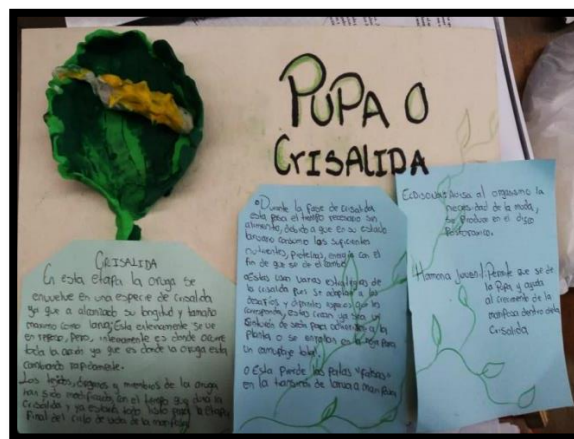 PUPA O
CRISALIDA
CRISALIDA
En esta etapa la oruga se
envuelve en una especie de crisalida
ya que a alcanzado su longitud y tamaño
maximo como larva; Esta externamente se ve
en reposo, pero, internamente es donde ocurre
toda la acción ya que es donde la oruga esta
cambiando rapidamente.
Los tejidos, organos y miembros de la oruga
han sido modificados en el tiempo que duró la
Crisalida y ya estará todo listo para la etapa
final del ciclo de vida de la mariposa
Durante la fase de crisalida
esta pasa el tiempo necesario sin
alimento, debido a que en su estado
larvario consumo las suficientes
nutrientes, proteinas, energia con el
fin de que se de el cambio
Estas usan varias estrategias de
la crisalida pues se adaptan a los
desafios y depredadores que las
estas crean ya sea un
de seda para adherirse a la
planta o se enrollan en la hoja para
un camuflaje total.
o Esta pierde las patas "falsas"
en la transición de larva a mariposa
Ecdisona: Avisa al organismo la
necesidad de la muda,
se produce en el
Hormona Juvenil: Permite que se de
la Pupa y ayuda
al crecimiento de la
mariposa dentro de la
Crisalida